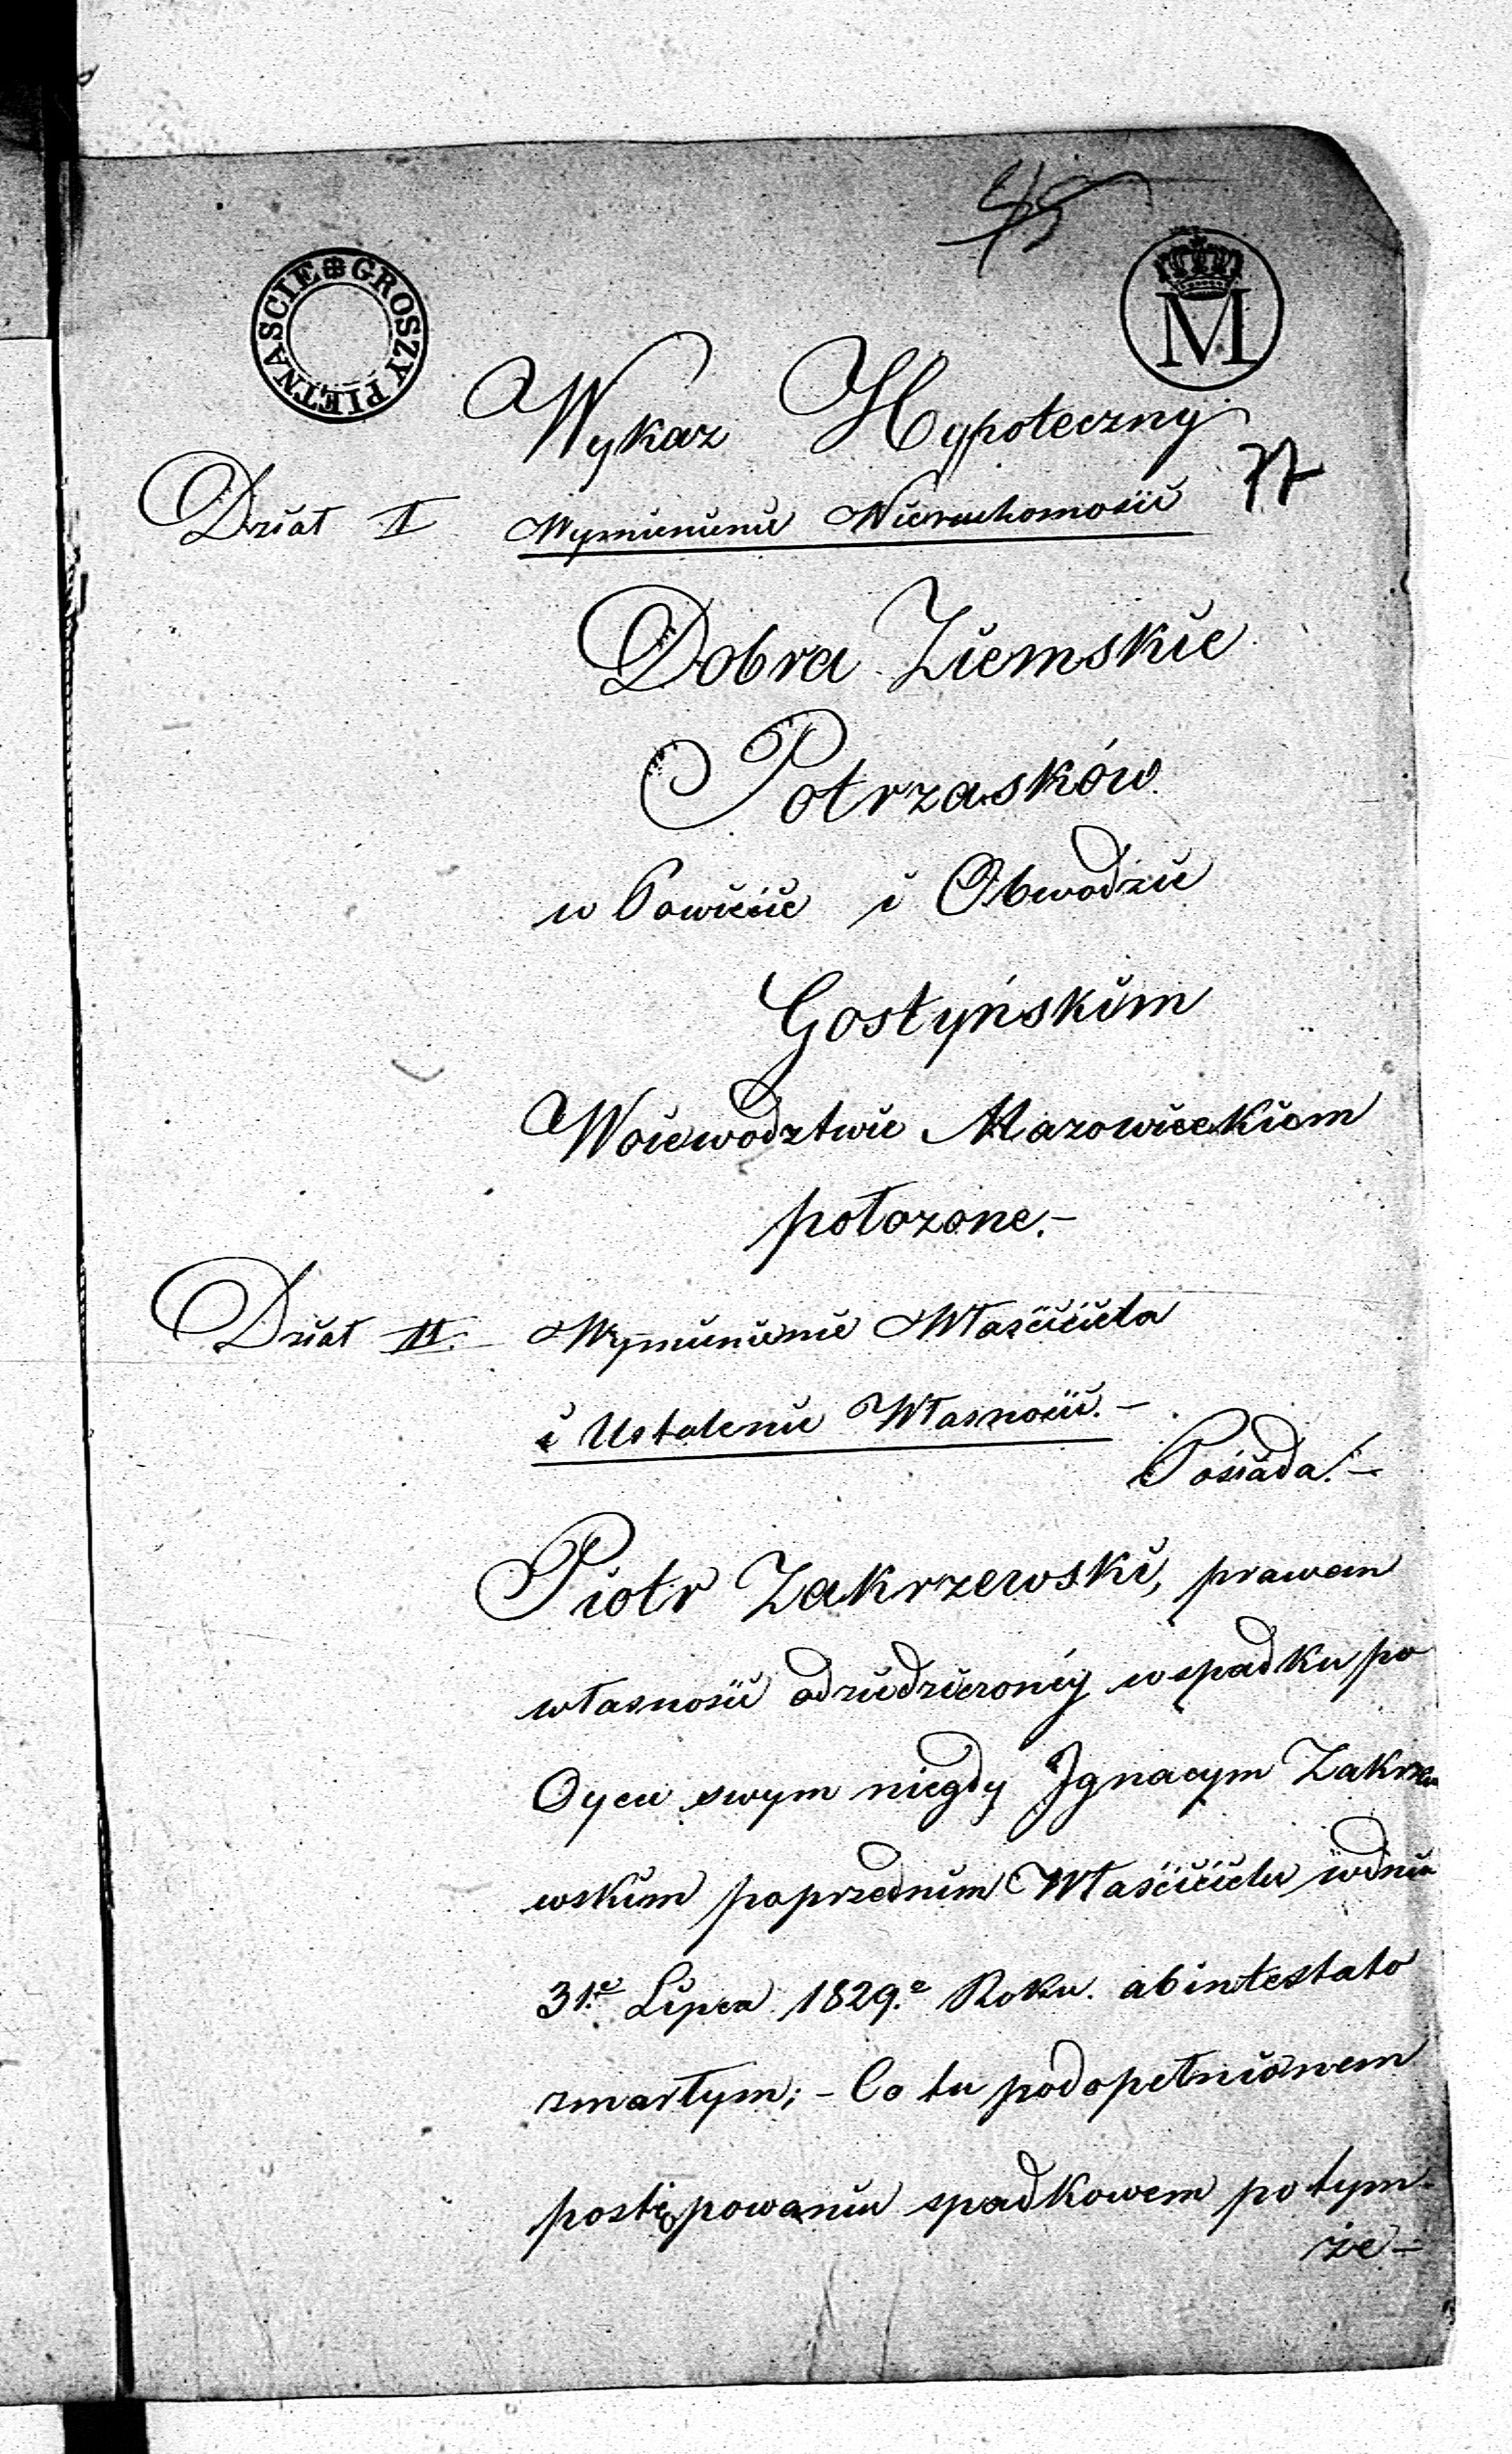 45
GROSZY PIETNASCIE
M
Wykaz Hypoteczny
77
Dział I Wymienienie Nieruchomości
Dobra Ziemskie
Potrzasków
w Powiecie i Obwodzie
Gostyńskim
Woiewodztwie Mazowieckiem
położone.–
Dział II. Wymienienie Właściciela
i Ustalenie Własności.–
Posiada.–
Piotr Zakrzewski, prawem
własności odziedziczonéy w spadku po
Oycu swym niegdy Ignacym Zakrze
wskim poprzednim Właścicielu w dniu
31.º Lipca 1829.º Roku. abintestato
zmarłym; – Co tu po dopełnionem
postępowaniu spadkowem po tym
że –